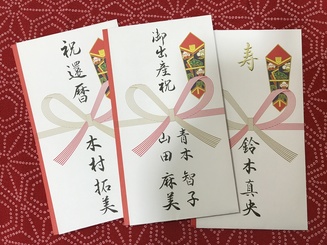 祝還暦
木村拓美
御出産祝
青木智子
山田麻美
寿
鈴木真央